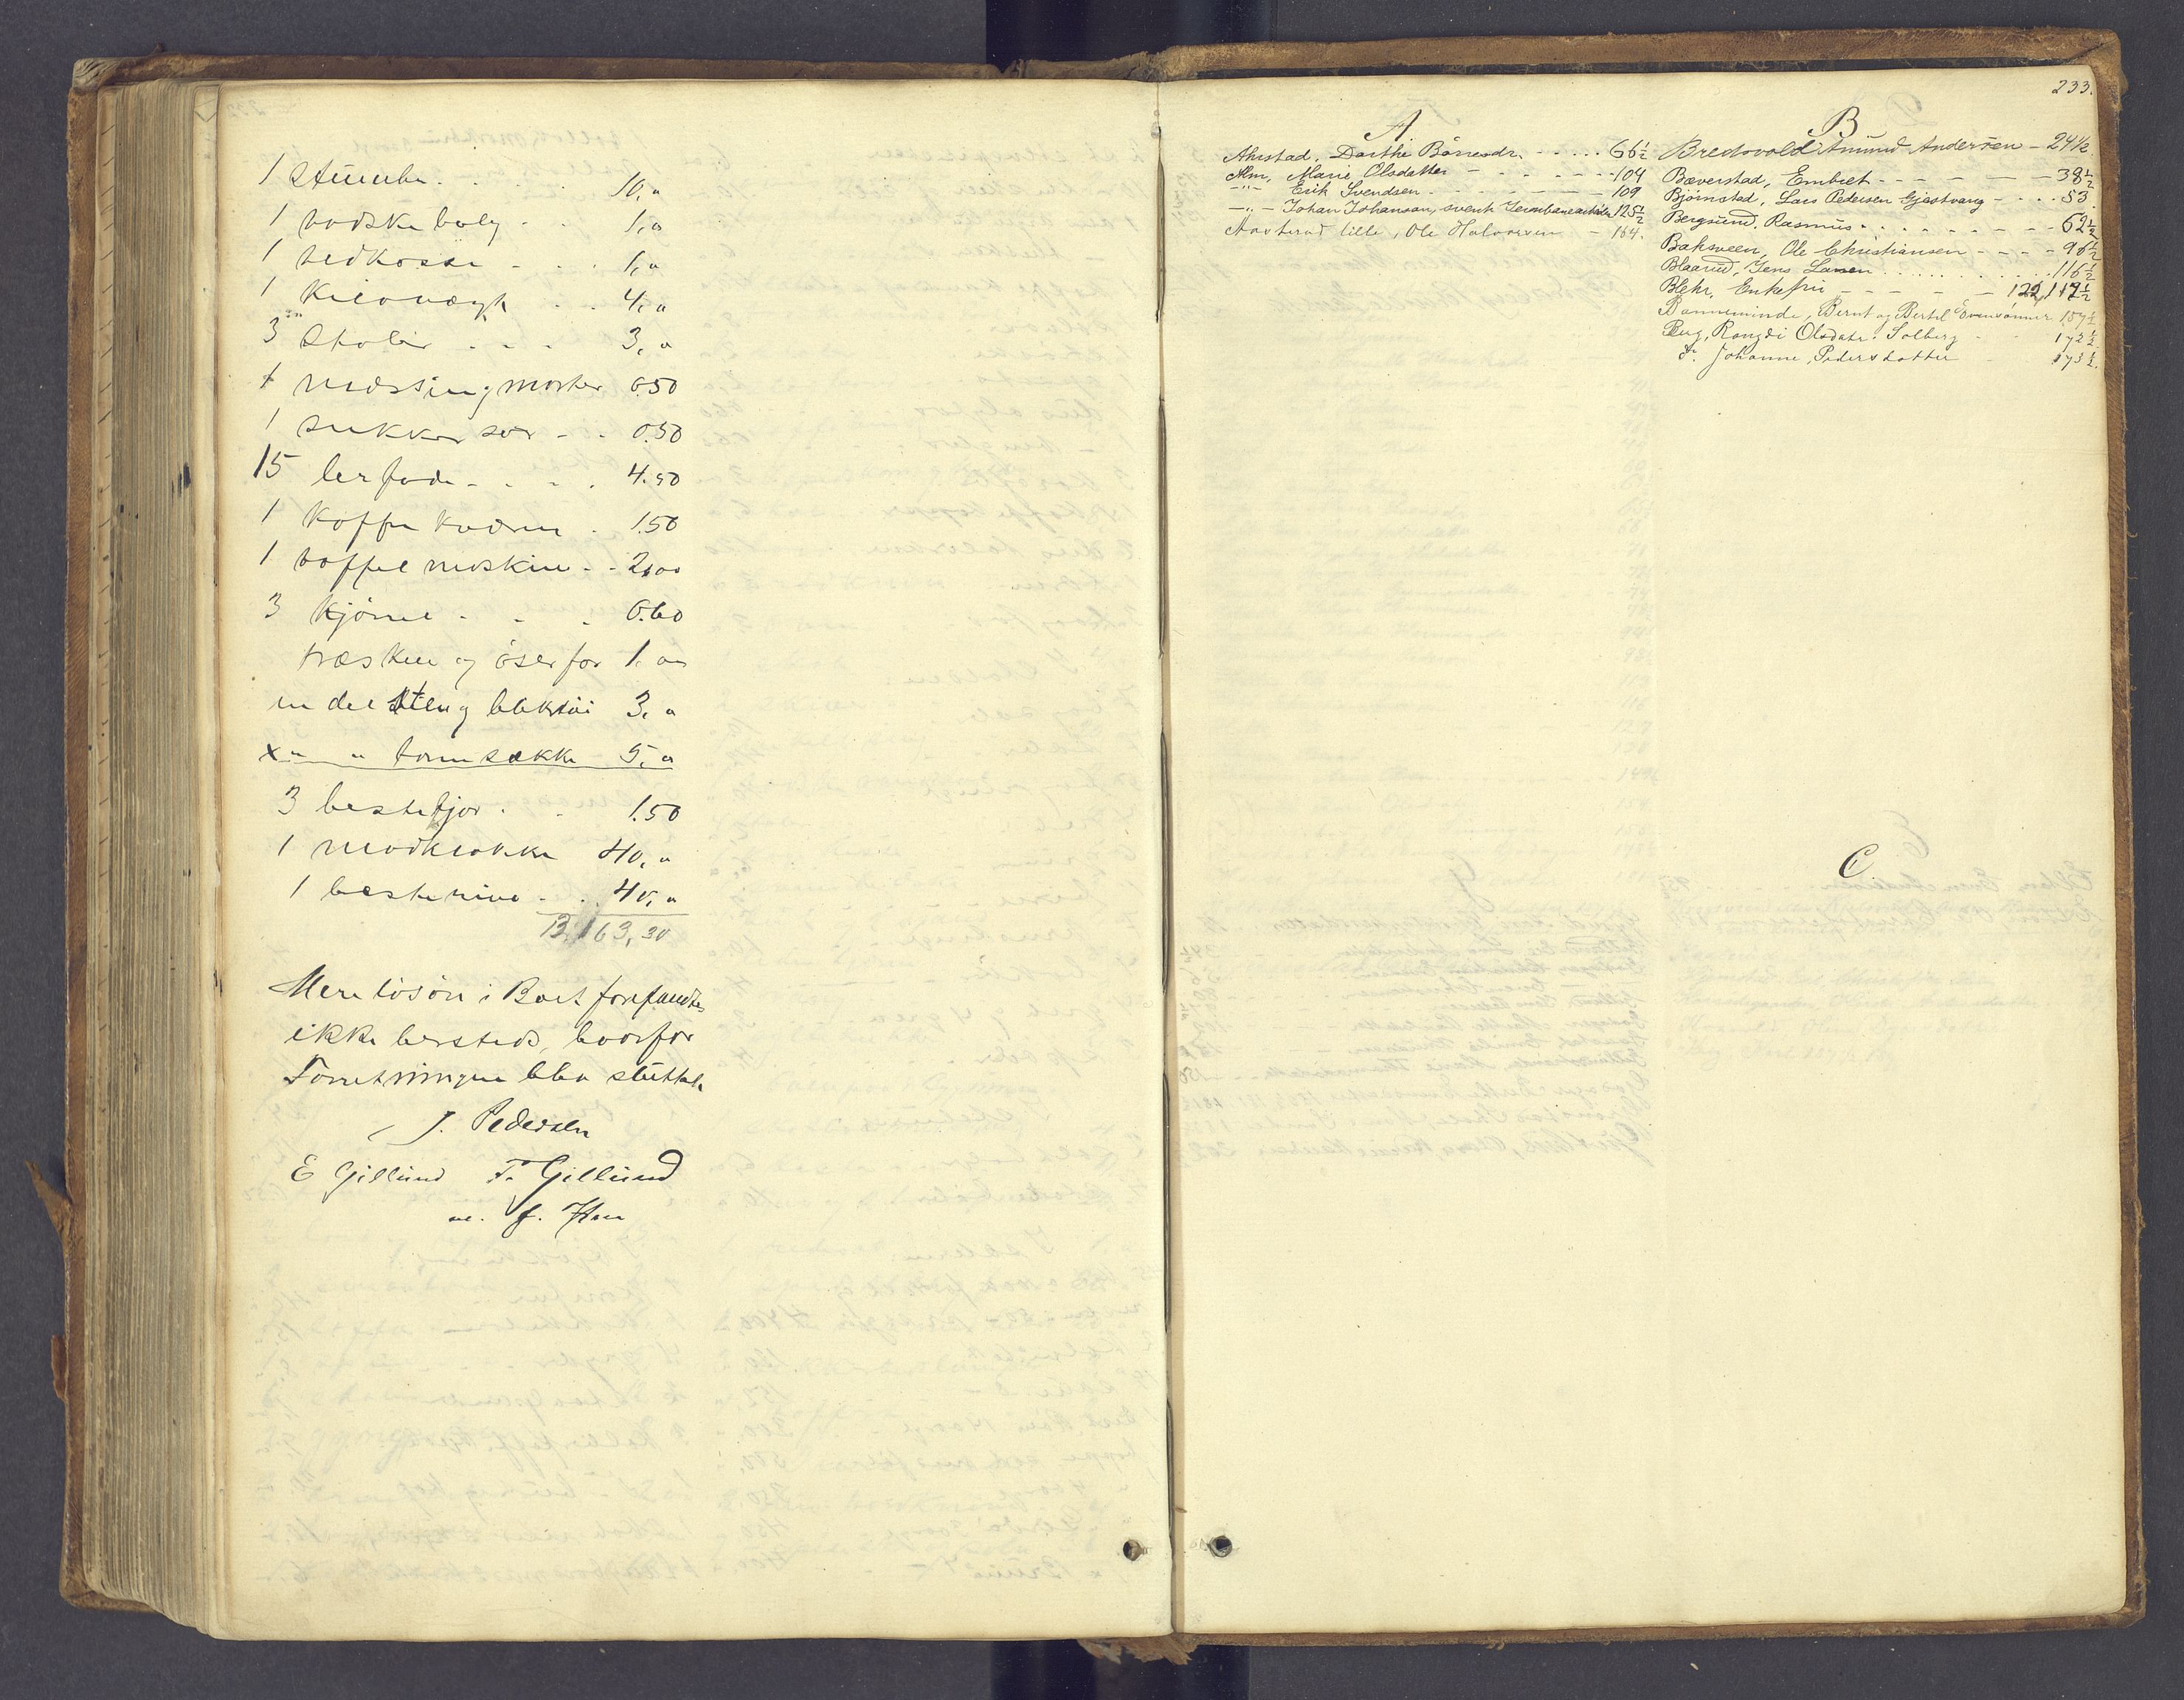 1 Stumba . . . 10,"
1 vadske balg . . 1,"
1 vedkasse - . . 1,"
1 Kilovægt . . 4,"
3 Stoler . . . 3,"
1 messing morter 0.50
1 sukker sax - . 0.50
15 lerfade - . . . 4.50
1 Kaffe kværn . 1.50
1 vaffel maskine - - 2,00
3 Kjørrel . . . 0.60
træskeer og öser for 1.00
en del sten og blektøi 3,"
x " " tomsække 5,"
3 hestetjor . . 1.50
1 madklokke 40,"
1 hesterive . . 40,"
13,163,30
Mere lösöre i Boet forefandtes
ikke hersteds, hvorfor
Forretningen blev sluttet.
J. Pedersen
E Gillund T. Gillund
m. f. Pen
233.
A
Ahrstad, Dorthe Børresdr. - . . . . 66½
Alm, Marie Olsdatter - - - - - - 104
- " - Erik Svendsen - - - - 109
- " - Johan Johanson, svensk Jernbanearbeider 125½
Aasterud lille, Ole Halvorsen - 164.
B
Bredvold Amund Andersen - 24½
Bæverstad, Embret - - - - - - 38½
Bjørnstad, Lars Pedersen Gjestvang - . . . 53.
Bergsund, Rasmus . . . . . . - - 62½
Baksveen, Ole Christiansen - - - - 96½
Blaarud, Jens Larsen . . . . . . . . . 116½
Blehr, Enkefru - - - - - 122, 117½
Bannerminde, Bernt og Bertel Evensønner 157½
Berg, Rangdi Olsdatr. Solberg - 172½
do Johanne Pedersdatter - 173½.
C.